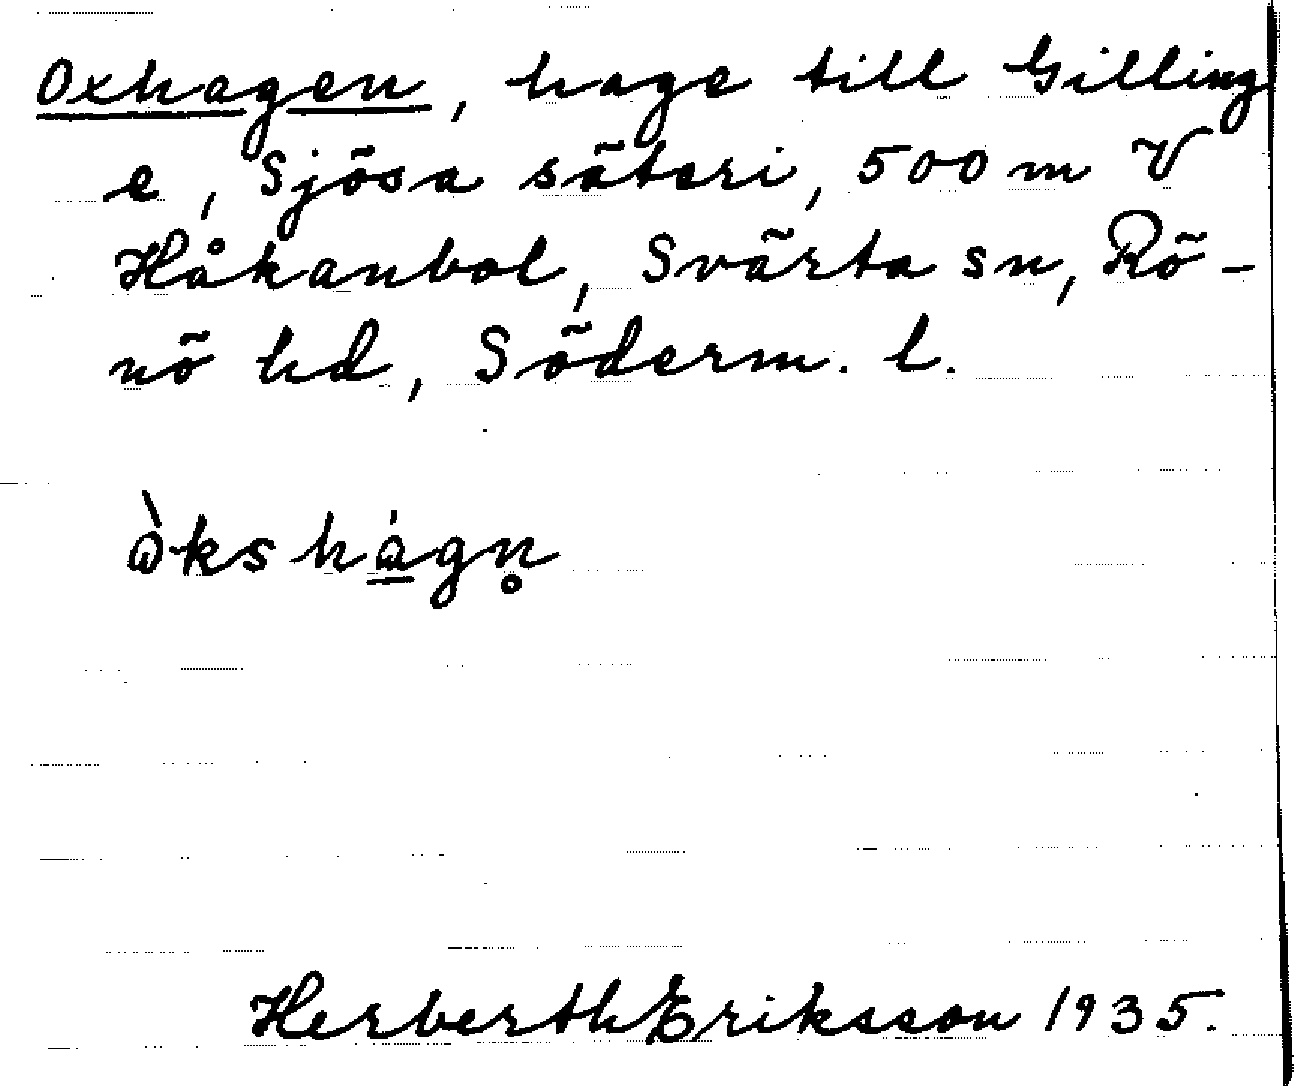 Oxhagen, hage till Gilling
e, Sjösa säteri, 500 m V
Håkanbol, Svärta sn, Rö-
nö hd, Söderm. l.
òkshágn̥
Herberth Eriksson 1935.